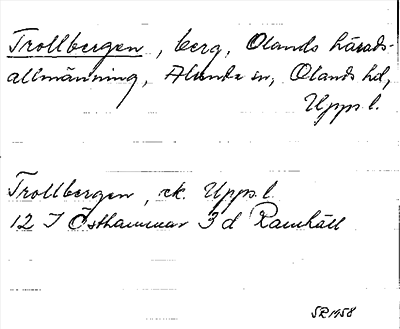 Trollbergen, berg, Olands härads-
allmänning, Alunda sn, Olands hd,
Upps. l.
Trollbergen, ek. Upps. l.
12 I Östhammar 3 d Ramhäll